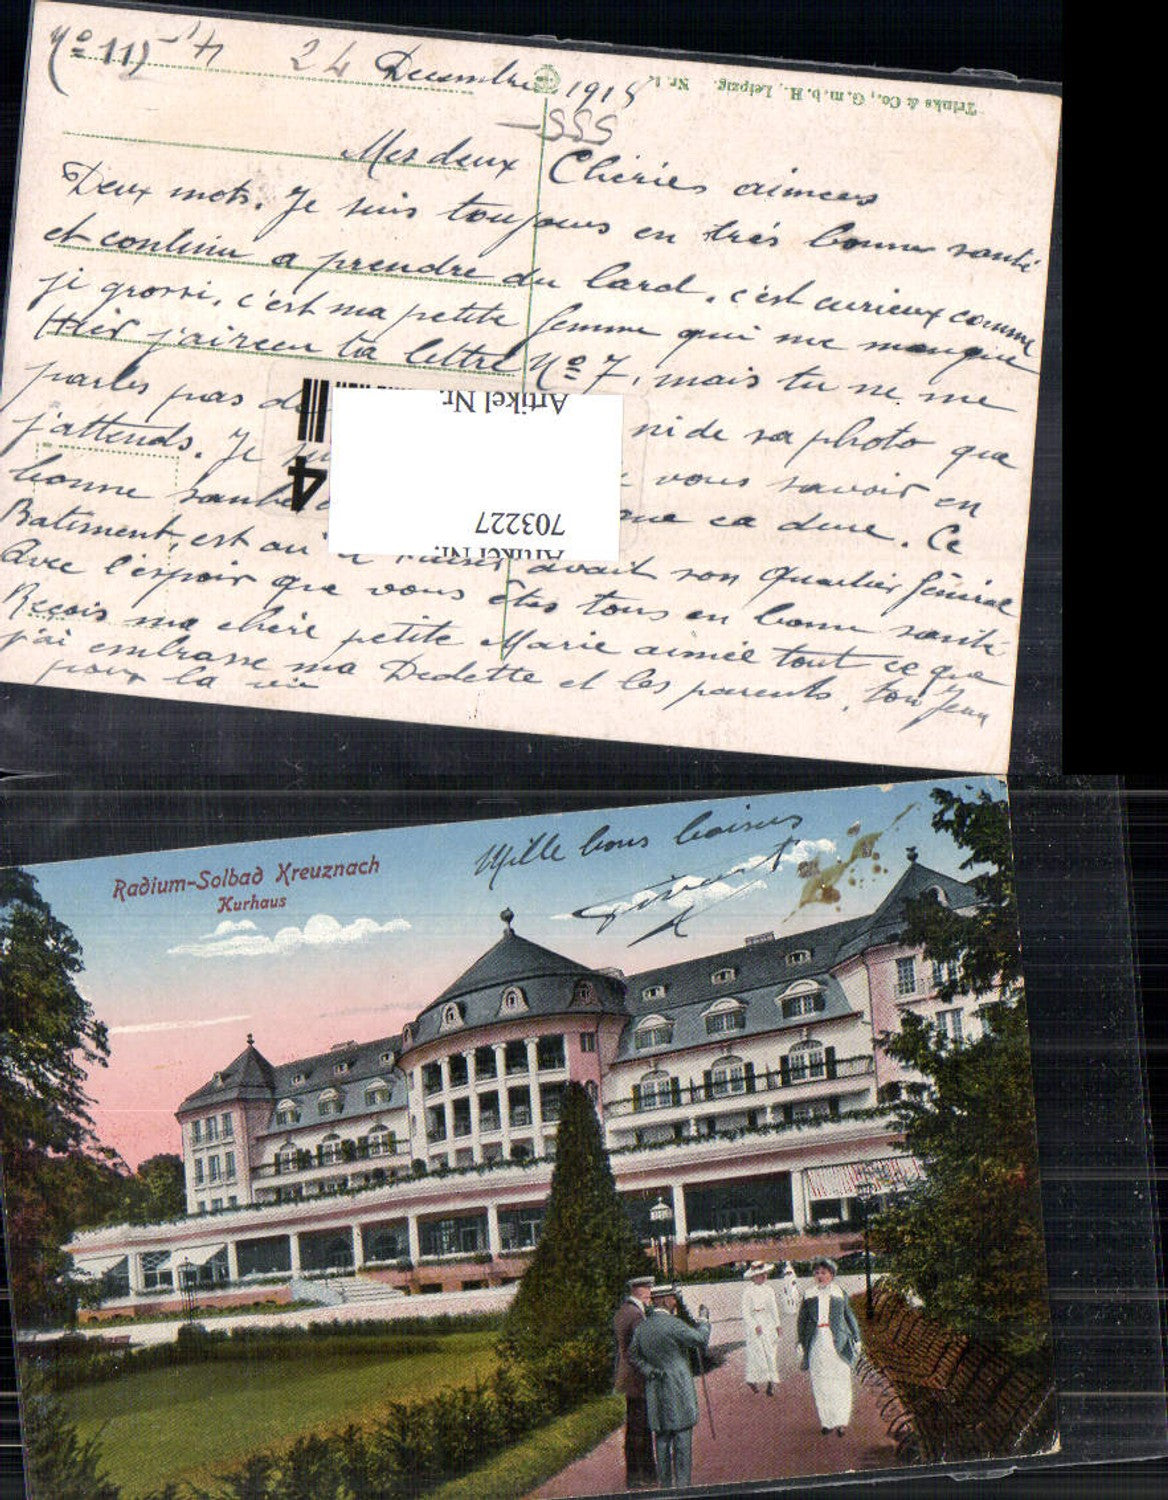 No 11)
24 Decembre 1918
Trinks & Co., G.m.b.H., Leipzig. Nr. 1
Mes deux Chéries aimées
Deux mots. Je suis toujours en très bonne santé
et continu a prendre du lard. c'est curieux comme
ji grossi, c'est ma petite femme qui me manque
Hier j'ai recu ta lettre No 7, mais tu ne me
parles pas de ni de sa photo que
j'attends. Je vous savoir en
bonne santé que ca dure. Ce
Batiment, est ou avait son Quartier Général
Avec l'espoir que vous êtes tous en bonne santé
Reçois ma chère petite Marie aimée tout ce que
j'ai embrasse ma Dedette et les parents, ton Jean
pour la vie
Artikel Nr.
703227
Artikel Nr.
4
Mille bons baisers
Radium-Solbad Kreuznach
Kurhaus